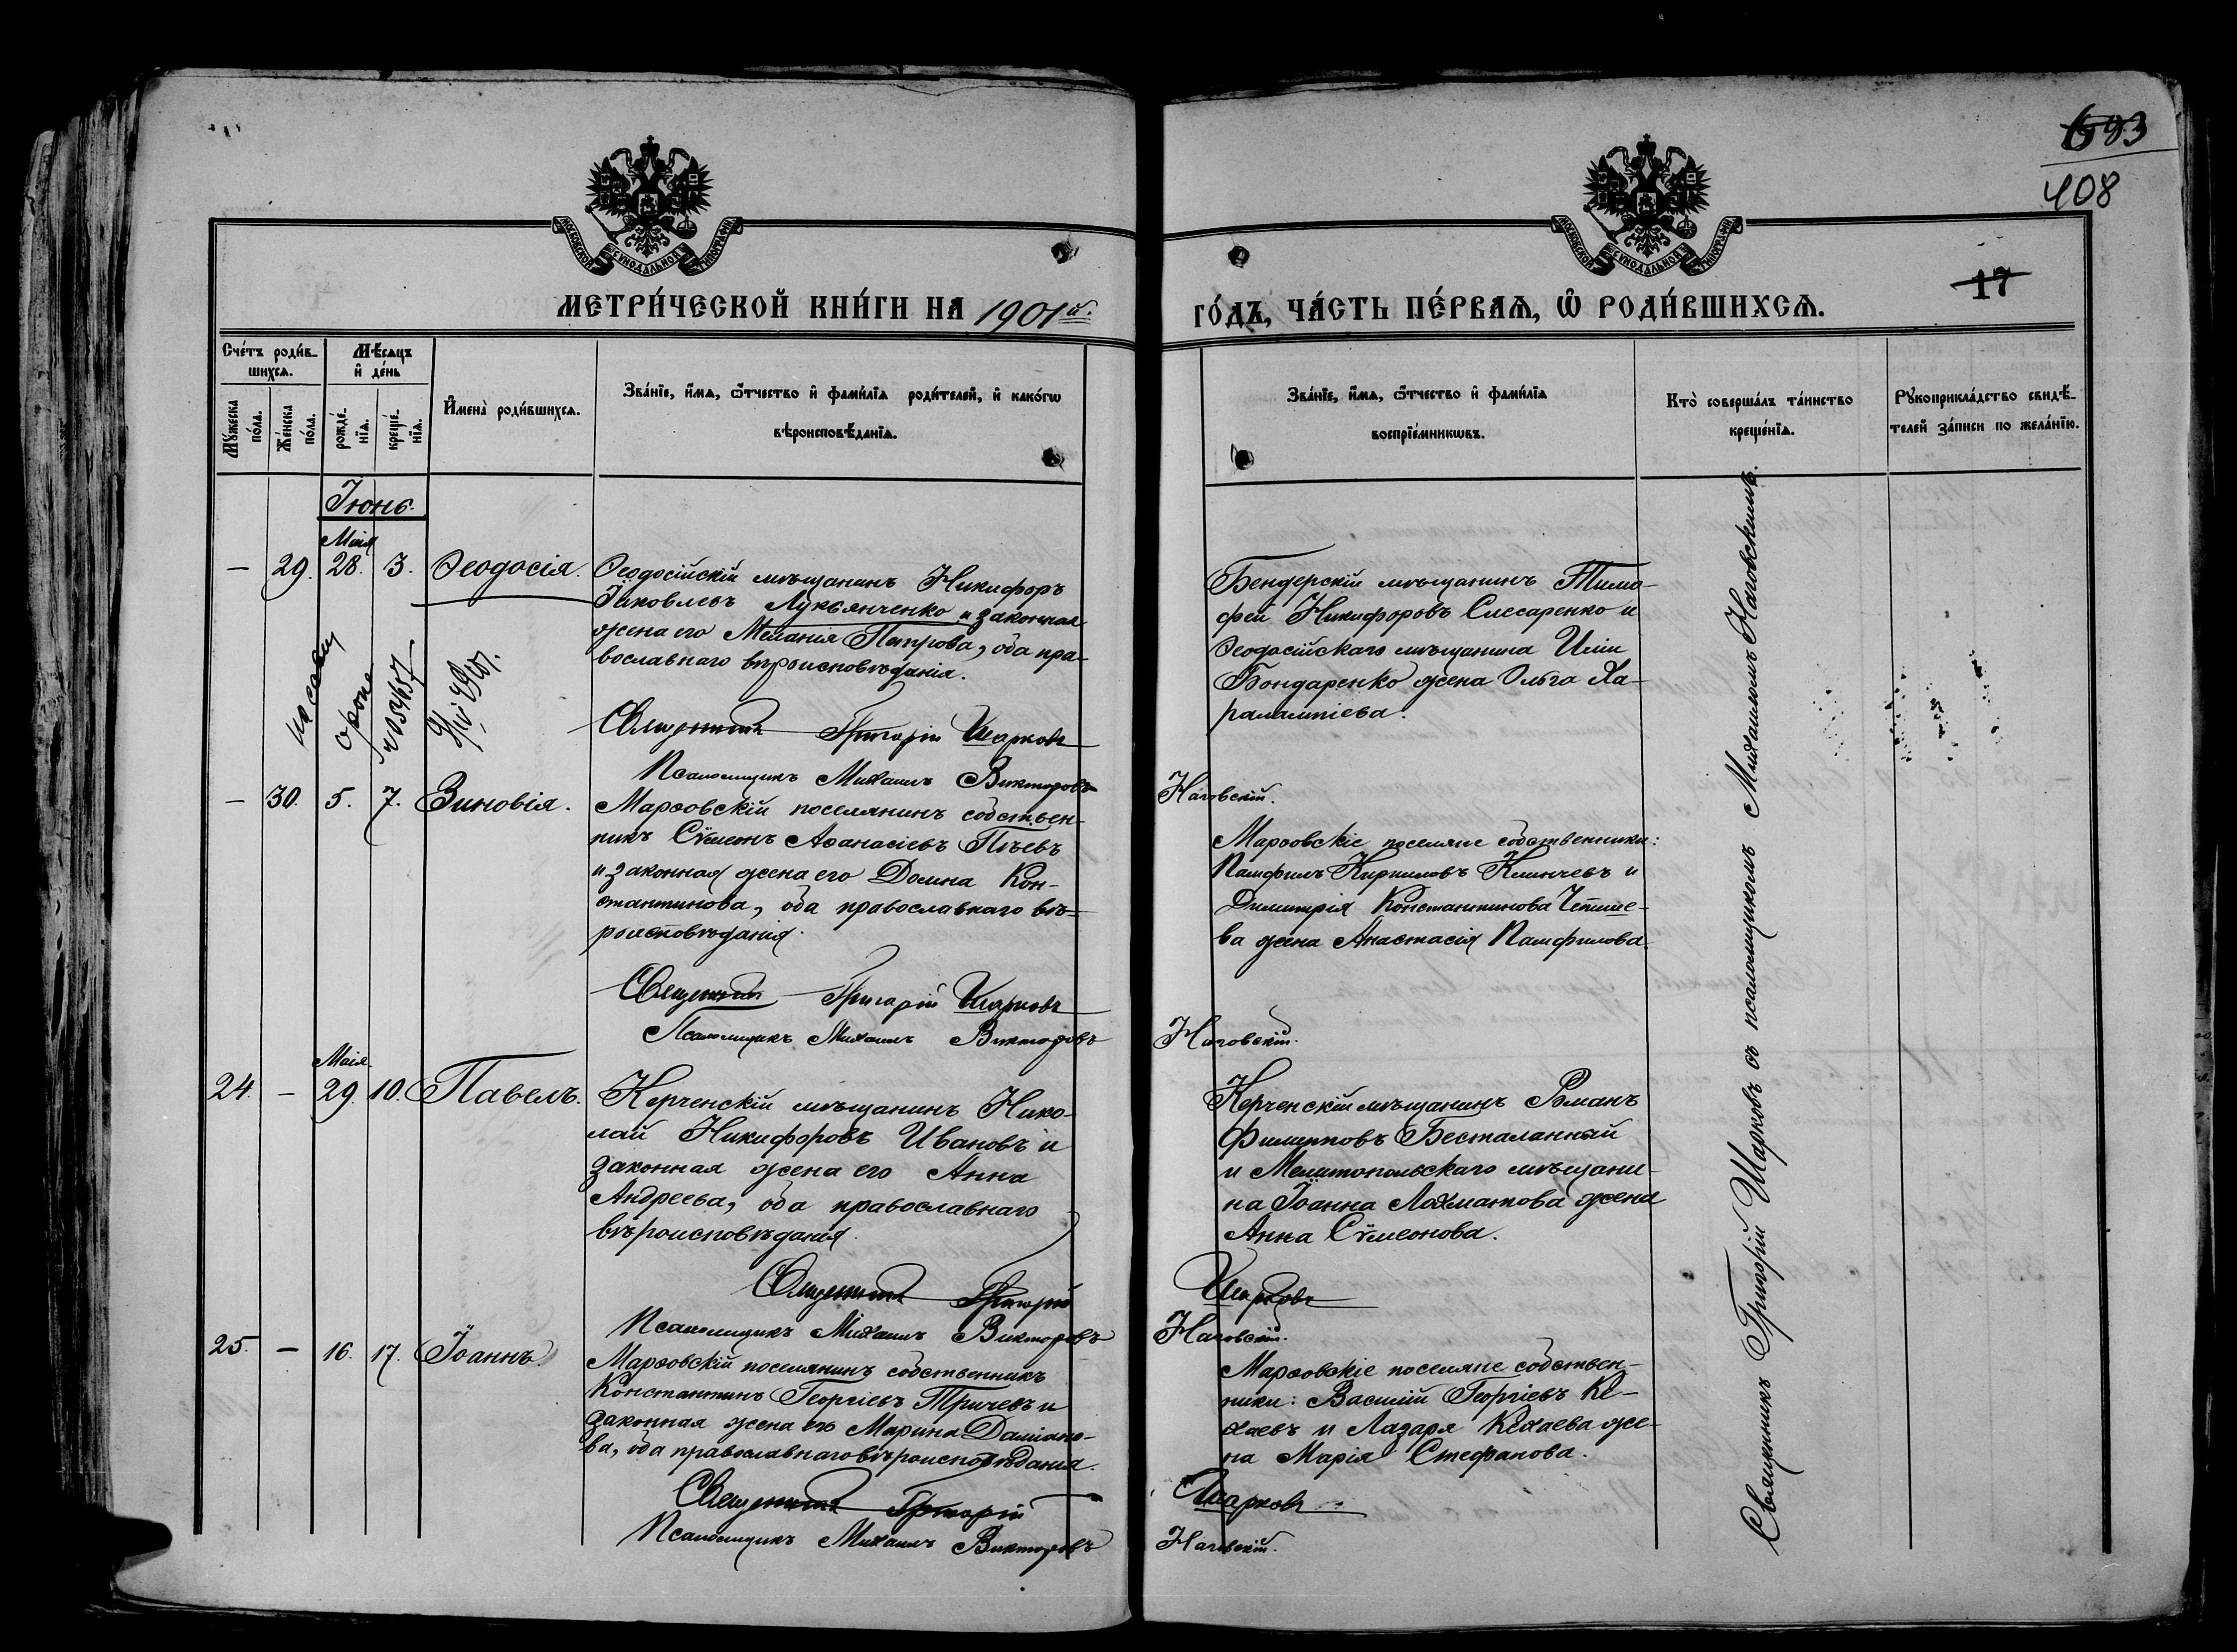 693
408
17
МОСКОВСКОЙ СѴНОДАЛЬНОЙ ТИПОГРАФІИ
МОСКОВСКОЙ СѴНОДАЛЬНОЙ ТИПОГРАФІИ
МЕТРИ́ЧЕСКОЙ КНИ́ГИ НА 1901й.
ГО́ДЪ, ЧА́СТЬ ПЕ́РВАѦ, Ѽ РОДИ́ВШИХСѦ.
Сче́тъ роди́в-
шихсѧ.
Мѣ́сѧцъ
и҆ де́нь
Мꙋ́жеска
по́ла.
Же́нска
по́ла.
рожде́-
нїѧ.
креще́-
нїѧ.
И҆мена̀ роди́вшихсѧ.
Зва́нїе, и҆́мѧ, ѻ҆́тчество и҆ фами́лїѧ роди́телей, и҆ како́гѡ
вѣроисповѣ́данїѧ.
Зва́нїе, и҆́мѧ, ѻ҆́тчество и҆ фами́лїѧ
воспрїе́мникѡвъ.
Кто̀ соверша́лъ та́инство
креще́нїѧ.
Рꙋкоприкла́дство свидѣ́-
телей за́писи по жела́нїю.
Іюнь.
Маія
— 29. 28. 3. Ѳеодосія.
Ѳеодосійскій мѣщанинъ Никифоръ
Яковлевъ Лукьянченко и законная
жена его Меланія Петрова, оба пра-
вославнаго вѣроисповѣданія.
Священникъ Григорій Шарковъ
Псаломщикъ Михаилъ Викторовъ
Наговскій.
Бендерскій мѣщанинъ Тимо-
фей Никифоровъ Слесаренко и
Ѳеодосійскаго мѣщанина Иліи
Бондаренко жена Ольга Ха-
ралампіева.
— 30. 5. 7. Зиновія.
Марѳовскій поселянинъ собствен-
никъ Сѵмеонъ Аѳанасіевъ
и законная жена его Домна Кон-
стантинова, оба православнаго вѣ-
роисповѣданія.
Священникъ Григорій Шарковъ
Псаломщикъ Михаилъ Викторовъ
Наговскій.
Марѳовскіе поселяне собственники:
Памфилъ Кирилловъ Клинчевъ и
Димитрія Константинова
ва жена Анастасія Памфилова.
Маія.
24. — 29. 10. Павелъ.
Керченскій мѣщанинъ Нико-
лай Никифоровъ Ивановъ и
законная жена его Анна
Андреева, оба православнаго
вѣроисповѣданія.
Священникъ Григорій
Шарковъ
Псаломщикъ Михаилъ Викторовъ
Наговскій.
Керченскій мѣщанинъ Романъ
Филипповъ Бесталанный
и Мелитопольскаго мѣщани-
на Іоанна Лохматова жена
Анна Сѵмеонова.
25. — 16. 17. Іоаннъ.
Марѳовскій поселянинъ собственникъ
Константинъ Георгіевъ Тричевъ и
законная жена его Марина Даміано-
ва, оба православнаго вѣроисповѣданія.
Священникъ Григорій
Шарковъ
Псаломщикъ Михаилъ Викторовъ
Наговскій.
Марѳовскіе поселяне собствен-
ники: Василій Георгіевъ Ке-
хаевъ и Лазаря Кехаева же-
на Марія Стефанова.
Священникъ Григорій Шарковъ съ псаломщикомъ Михаиломъ Наговскимъ.